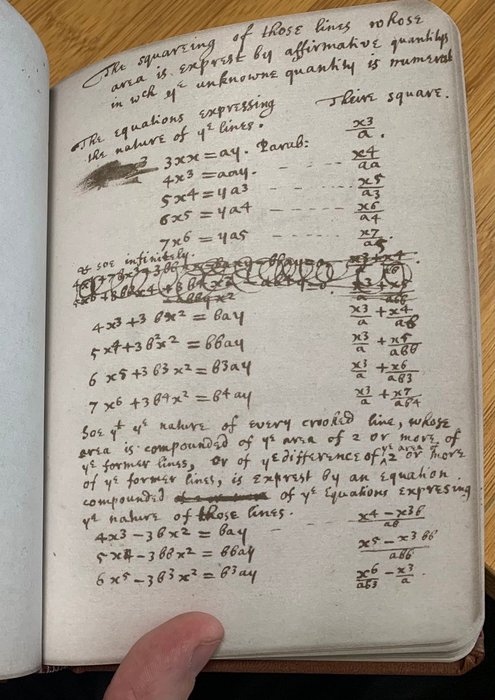 The squareing of those lines whose
area is exprest by affirmative quantitys
in wch ye unknowne quantity is numerat
The equations expressing Theire square.
the nature of ye lines.
3xx = ay. Parab: x3/a.
4x3 = aay. x4/aa
5x4 = ya3 x5/a3
6x5 = ya4 x6/a4
7x6 = ya5 x7/a5
& soe infinitely.
4x3 + 3bx2 = bay x3/a + x4/ab
5x4 + 3b2x2 = bbay x3/a + x5/abb
6x5 + 3b3x2 = b3ay x3/a + x6/ab3
7x6 + 3b4x2 = b4ay x3/a + x7/ab4
Soe yt ye nature of every crooked line, whose
area is compounded of ye area of 2 or more of
ye former lines, or of ye difference of ye area of 2 or more
of ye former lines, is exprest by an Equation
compounded of ye Equations expresing
ye nature of those lines.
4x3 - 3bx2 = bay x4 - x3b/ab
5x4 - 3bbx2 = bbay x5 - x3bb/abb
6x5 - 3b3x2 = b3ay x6/ab3 - x3/a